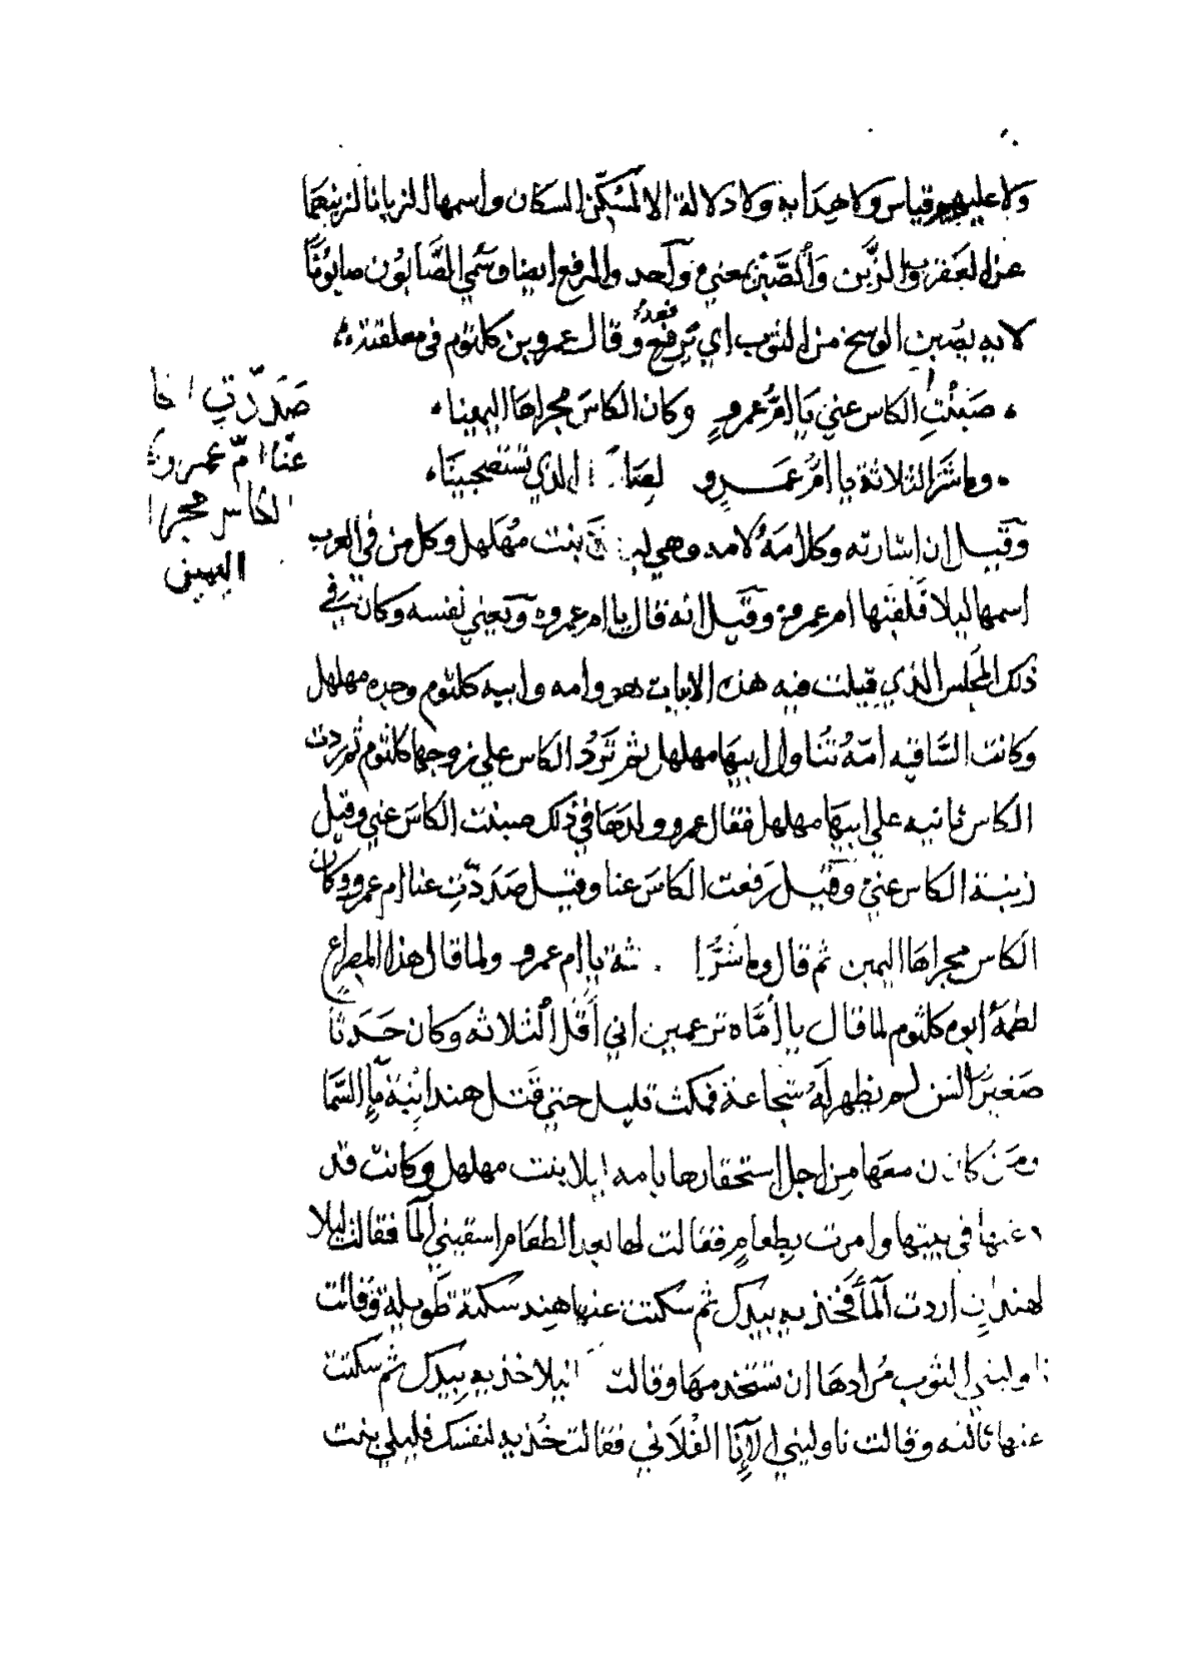 ولا عليهم قياس ولا هدايه ولا دلالة الا لمسكن السكان واسمها الزبانا لزبنهما
عن العقرب والزَّبن وَالصَّبْن بمعني وآحد والرفع ايضا وسُمي الصَّابُون صابُونًا
لانه يصبن الوسخ من الثوب اي يَرفعُه وقال عمرو بن كلثوم في معلقته
صَبَنْتِ الكاس عني يَا امَّ عمروٍ وكان الكاسَ مجراها اليمينا
وما شَرُّ الثلاثة يا امَّ عَمْرِو الذي تستصحبينَا
وقيل ان اشارته وكلامَهُ لامه وهي بنت مُهَلهل وكل من في العرب
اسمها ليلا فلقبَتها ام عمرو وقيل انه قال يا ام عمرو ويعني نفسه وكان في
ذلك المجلس الذي قيلت فيه هذه الابيات هو وامه وابيه كلثوم وجده مهلهل
وكانت السَّاقيه امّهُ تُنَاول ابيهَا مهلهل ثم تَردُّ الكاس علي زوجها كلثوم ثم ردت
الكاس ثانيه علي ابيهَا مهلهل فقال عمرو ولدهَا في ذلك صبنت الكاسَ عني وقيل
زبنة الكاس عني وقيل رَفعت الكاسَ عنا وقيل صَدَدّتِ عنا ام عمرو وكان
الكاس مجراهَا اليمين ثم قال وما شَرُّ يا ام عمرو ولما قال هذا المصراع
لطمهُ ابوه كلثوم لما قال يا أمّاه تزعمين اني أقل الثلاثه وكان حَدَثًا
صَغيرَ السن لم يظهر لَهُ شجاعة فمكث قليل حتي قَتل هند ابْنة مآ السَّمَا
ومَن كان معَها مِن اجل استحقارها بامه ليلا بنت مهلهل وكانت قد
دعتها في بيتها وامرت بِطعامٍ فقالت لها بعد الطعَام اسقيني المآ فقالت ليلا
لهند إن اردت المآ فخذيه بيدك ثم سكتت عنها هِند سكتة طَويلة وقالت
ناوليني الثوب مُرادهَا ان تستخدمهَا وقالت ليلا خذيه بِيدك ثم سكتت
عنها ثالثه وقالت ناوليني الإنَا الفُلاَني فقالت خُذيه لنفسك فليلي بنت
صَدَدّتِ
عنّا امّ عمرو
الكاس مجرا
اليمين